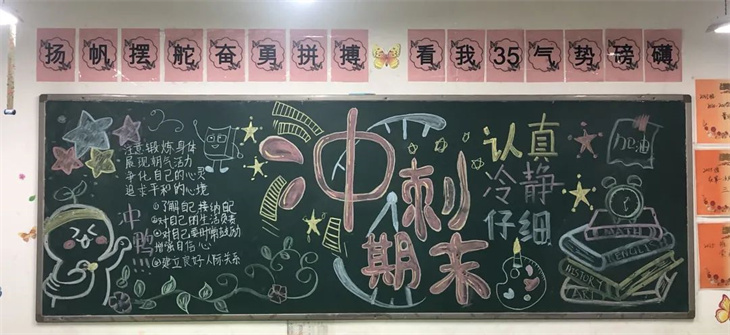 扬帆摆舵奋勇拼搏 看我35气势磅礴
注意锻炼身体
展现朝气活力
净化自己的心灵
追求平和的心境
①了解自己接纳自己
②对自己的生活负责
③对自己要时常鼓励
增强自信心
④建立良好人际关系
冲鸭!!!
冲刺
期末
认真
冷静
仔细
加油
MATH
ENGLISH
HISTORY
ART